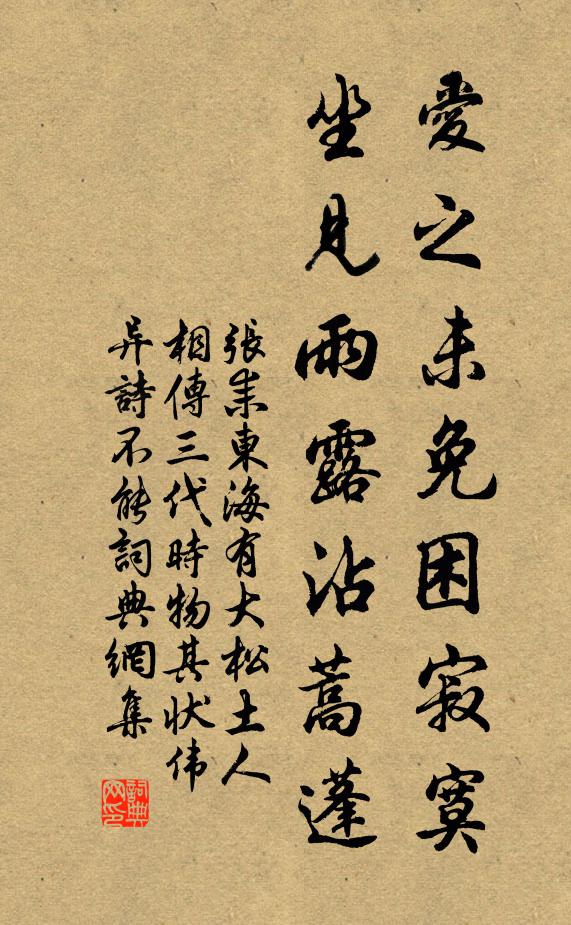 愛之未免困寂寞
坐見雨露沾蒿蓬
張耒東海有大松土人
相傳三代時物其狀伟
异詩不能詞典網集
詞典网印